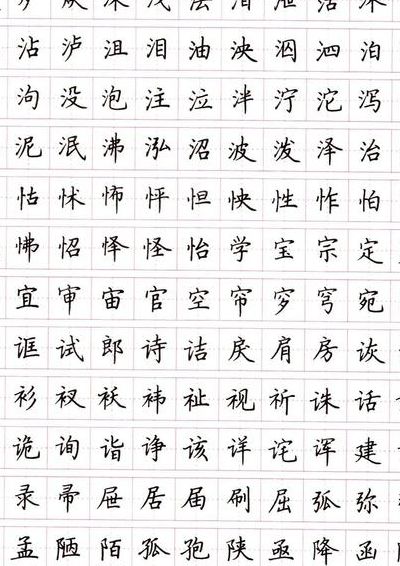 沾泸沮泪油泱泅泗泊
泃没泡注泣泮泞沱泻
泥泯沸泓沼波泼泽治
怙怵怖怦怛怏性怍怕
怫怊怿怪怡学宝宗定
宜审宙官空帘穸穹宛
诓试郎诗诘戾肩房诙
衫衩袄祎祉视祈诛话
诡询诣诤该详诧诨建
录帚屉居届刷屈弧弥
孟陋陌孤孢陕亟降函